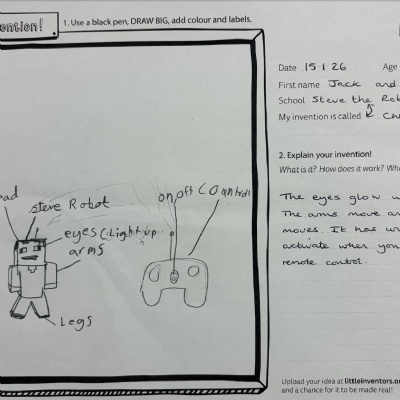 ention!
1. Use a black pen, DRAW BIG, add colour and labels.
Date 15.1.26 Age
First name Jack and
School Steve the Rob
My invention is called Ch
2. Explain your invention!
What is it? How does it work? Wh
The eyes glow w
The arms move an
moves. It has w
activate when you
remote control.
ead
steve Robot
on/off
eyes (Light up
arms
Legs
Upload your idea at littleinventors.or
and a chance for it to be made real!